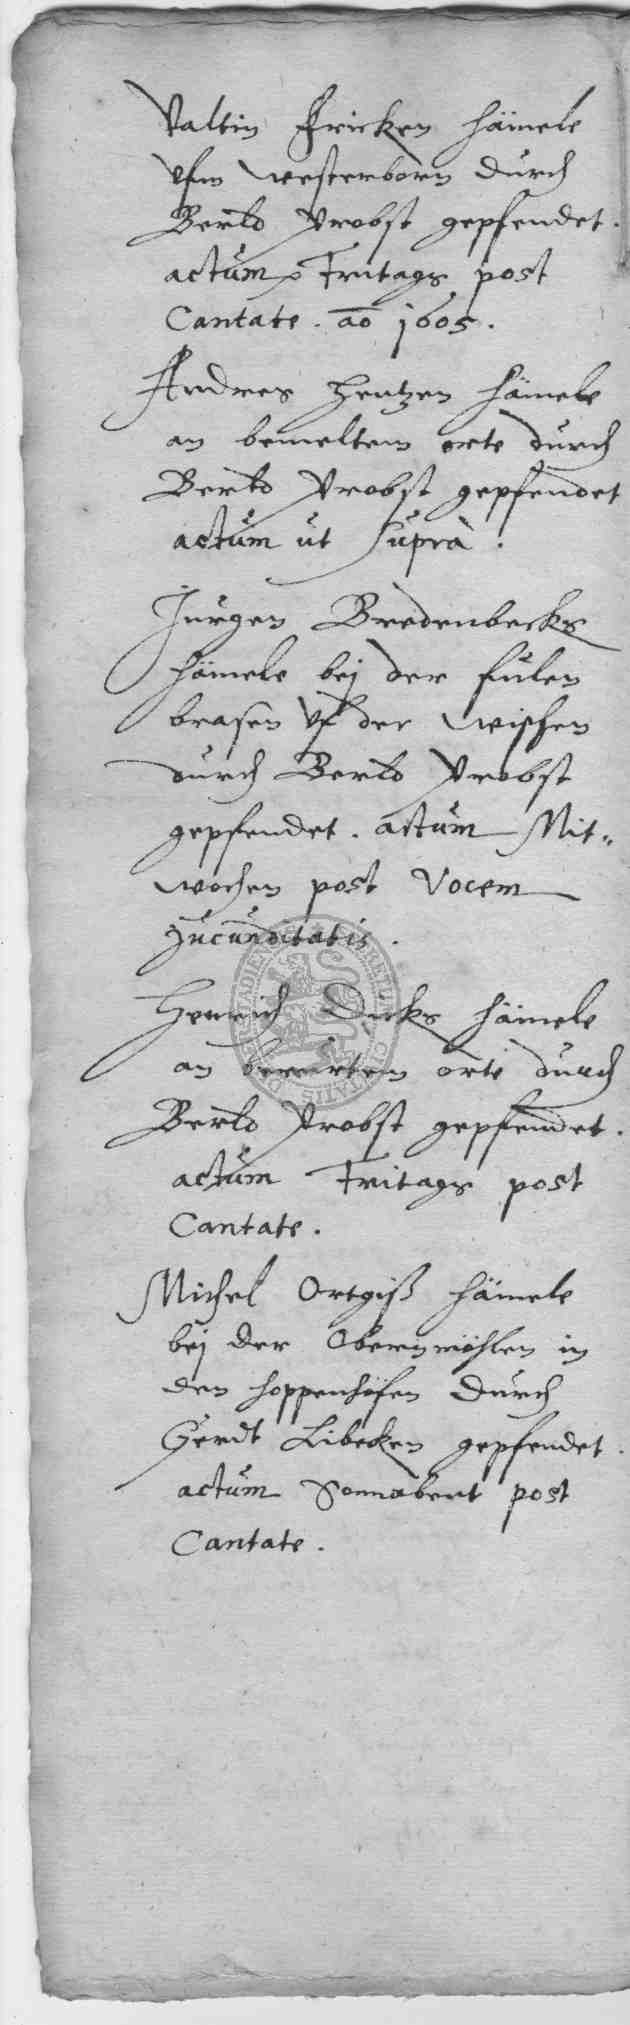 Valtin Fricken hämele
vfm westerborn durch
Berld Probst gepfendet.
actum Fritags post
Cantate. ao 1605.
Andres Hentzen hämele
an bemeltem orte durch
Berld Probst gepfendet
actum ut supra.
Jurgen Bredenbecks
hämele bej der fulen
brasen vf der wischen
durch Berld Probst
gepfendet. actum Mit=
wochen post Vocem
Jucunditatis.
Henrich Dicks hämele
an berürtem orte durch
Berld Probst gepfendet.
actum Fritags post
Cantate.
Michel Ortgiß hämele
bej der Obernmöhlen in
den hoppenhöfen durch
Gerdt Libeken gepfendet.
actum Sonnabent post
Cantate.